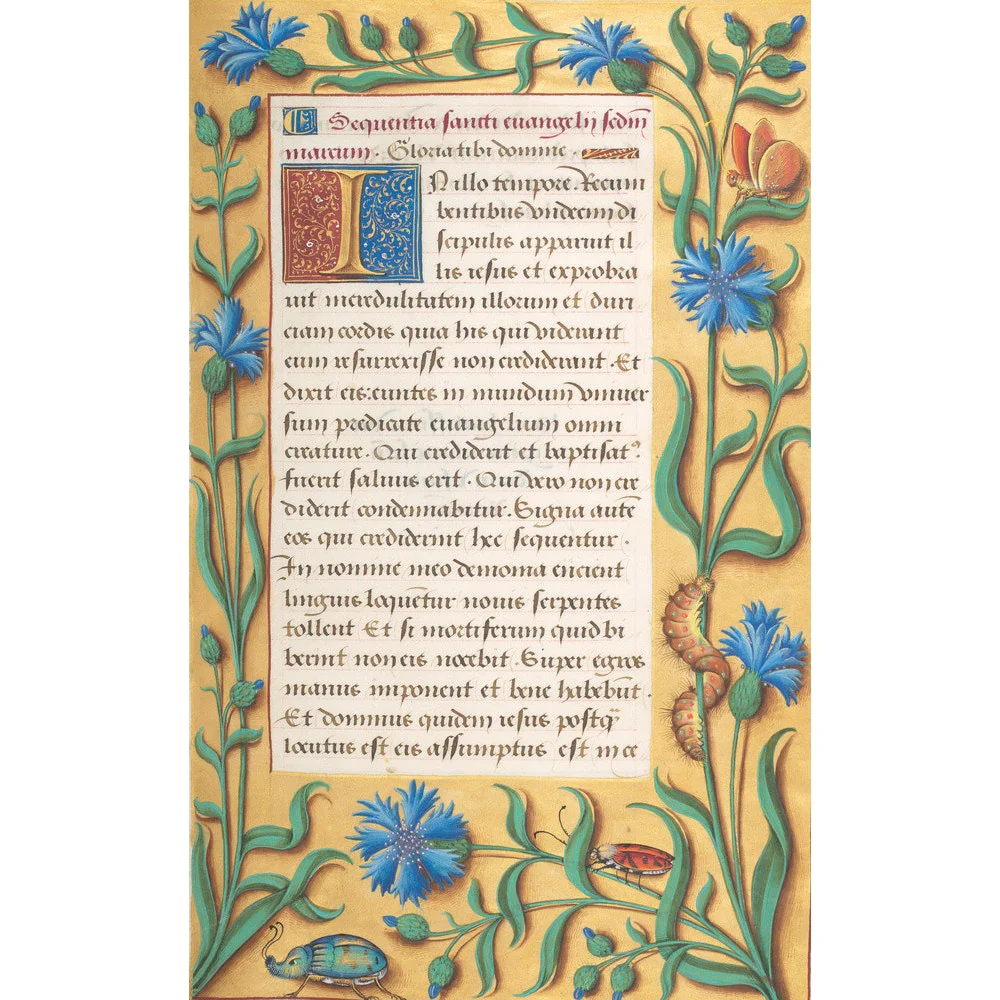 Sequentia sancti euangelij scdm̄
marcum. Gloria tibi domine.
IN illo tempore. Recum
bentibus vndecim di
scipulis apparuit il
lis iesus et exprobra
uit incredulitatem illorum et duri
ciam cordis quia his qui viderunt
eum resurrexisse non crediderunt. Et
dixit eis: euntes in mundum vniuer
sum predicate euangelium omni
creature. Qui crediderit et baptisatꝰ
fuerit saluus erit. Qui vero non cre
diderit condemnabitur. Signa autē
eos qui crediderint hec sequentur.
In nomine meo demonia eiicient
linguis loquētur nouis serpentes
tollent Et si mortiferum quid bi
berint non eis nocebit. Super egros
manus imponent et bene habebūt.
Et dominus quidem iesus postq̄
locutus est eis assumptus est in ce